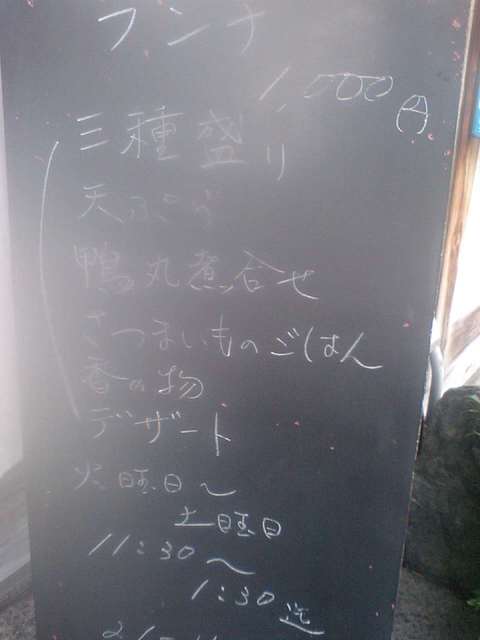 ランチ
1,000円
三種盛り
天ぷら
鴨丸煮合せ
さつまいものごはん
香の物
デザート
火曜日〜
土曜日
11:30〜
1:30迄